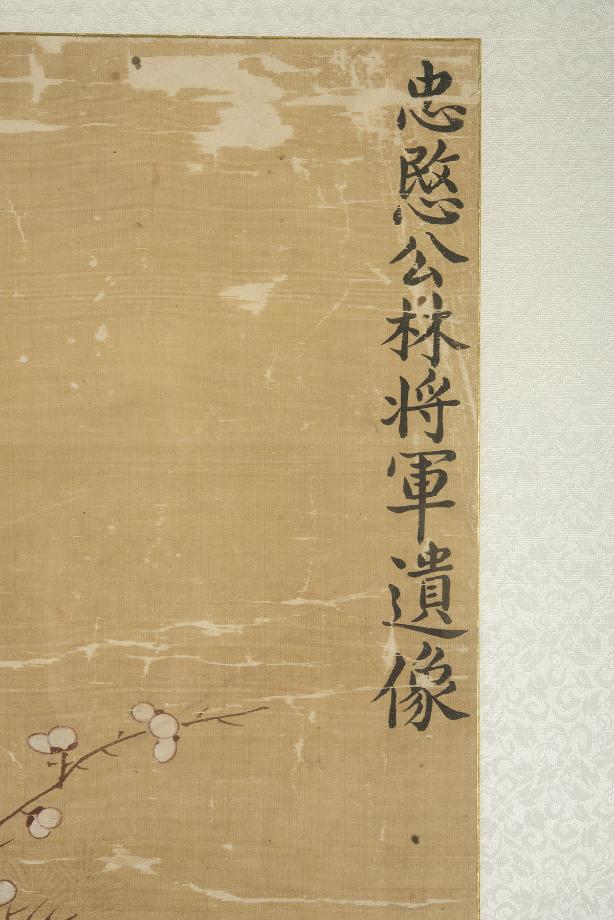 忠愍公林将軍遺像